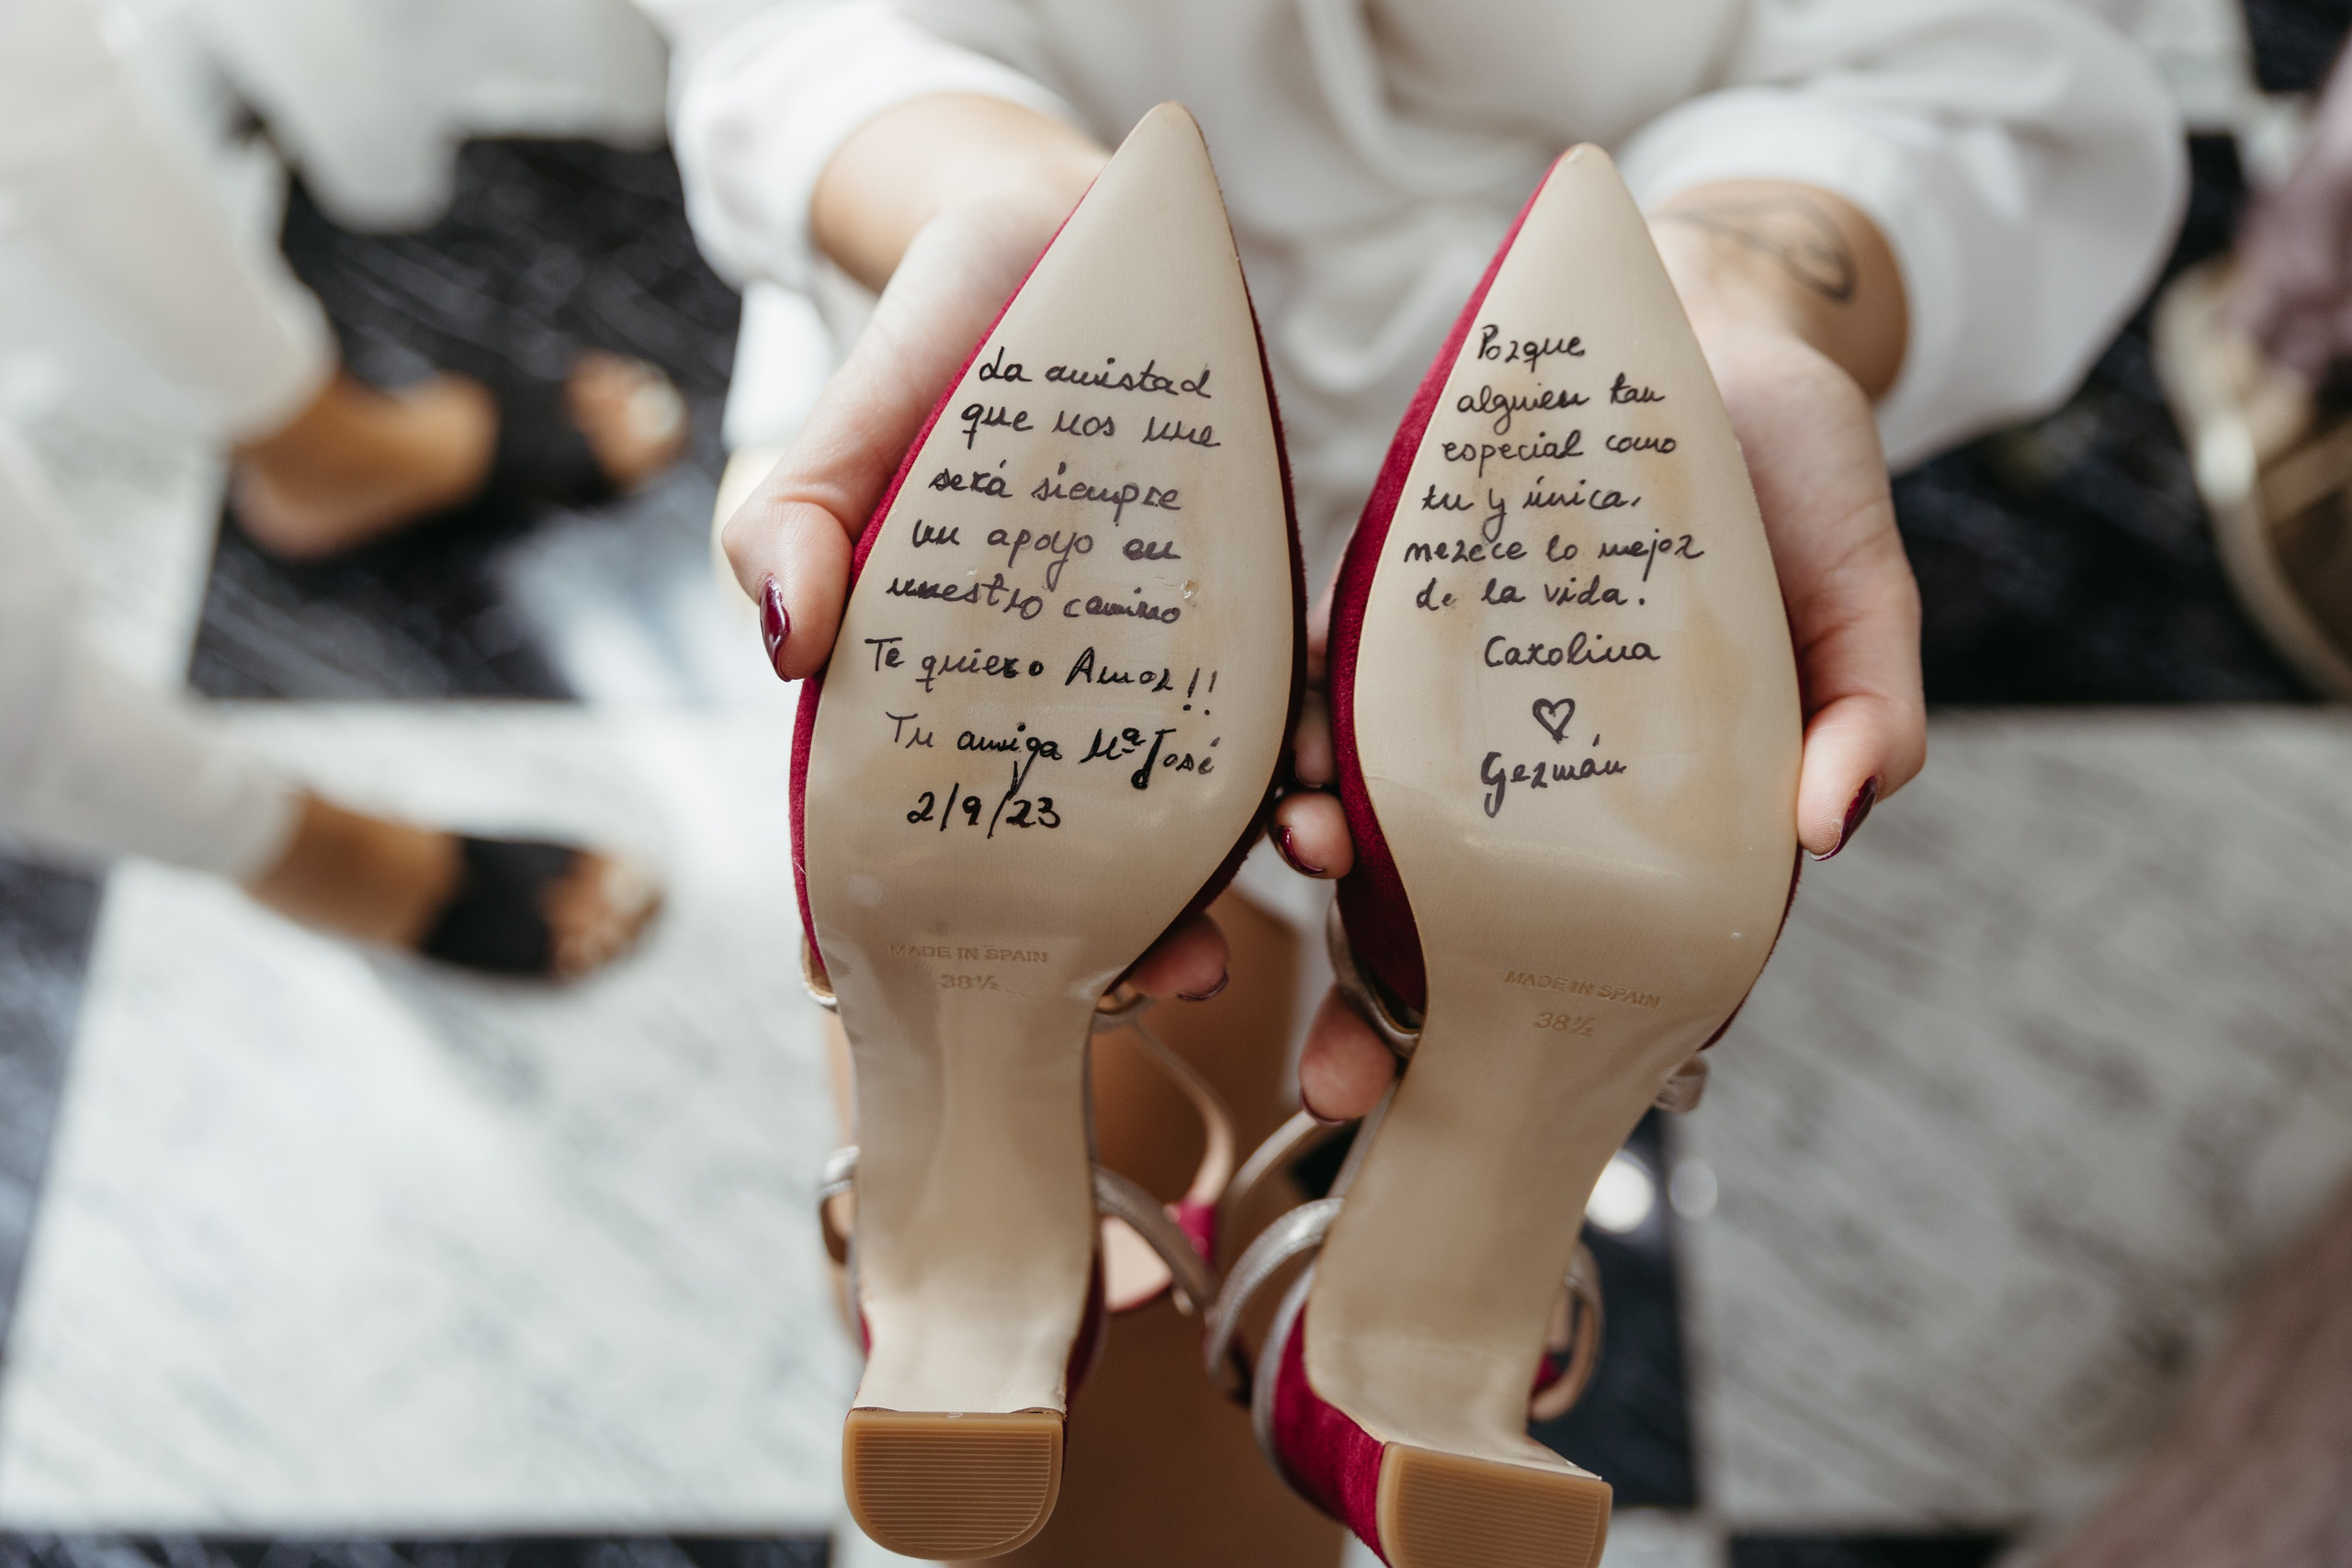 La amistad
que nos une
será siempre
un apoyo en
nuestro camino
Te quiero Amor!!
Tu amiga Mª José
2/9/23
MADE IN SPAIN
38½
Porque
alguien tan
especial como
tu y única,
merece lo mejor
de la vida.
Carolina
♡
Germán
MADE IN SPAIN
38½